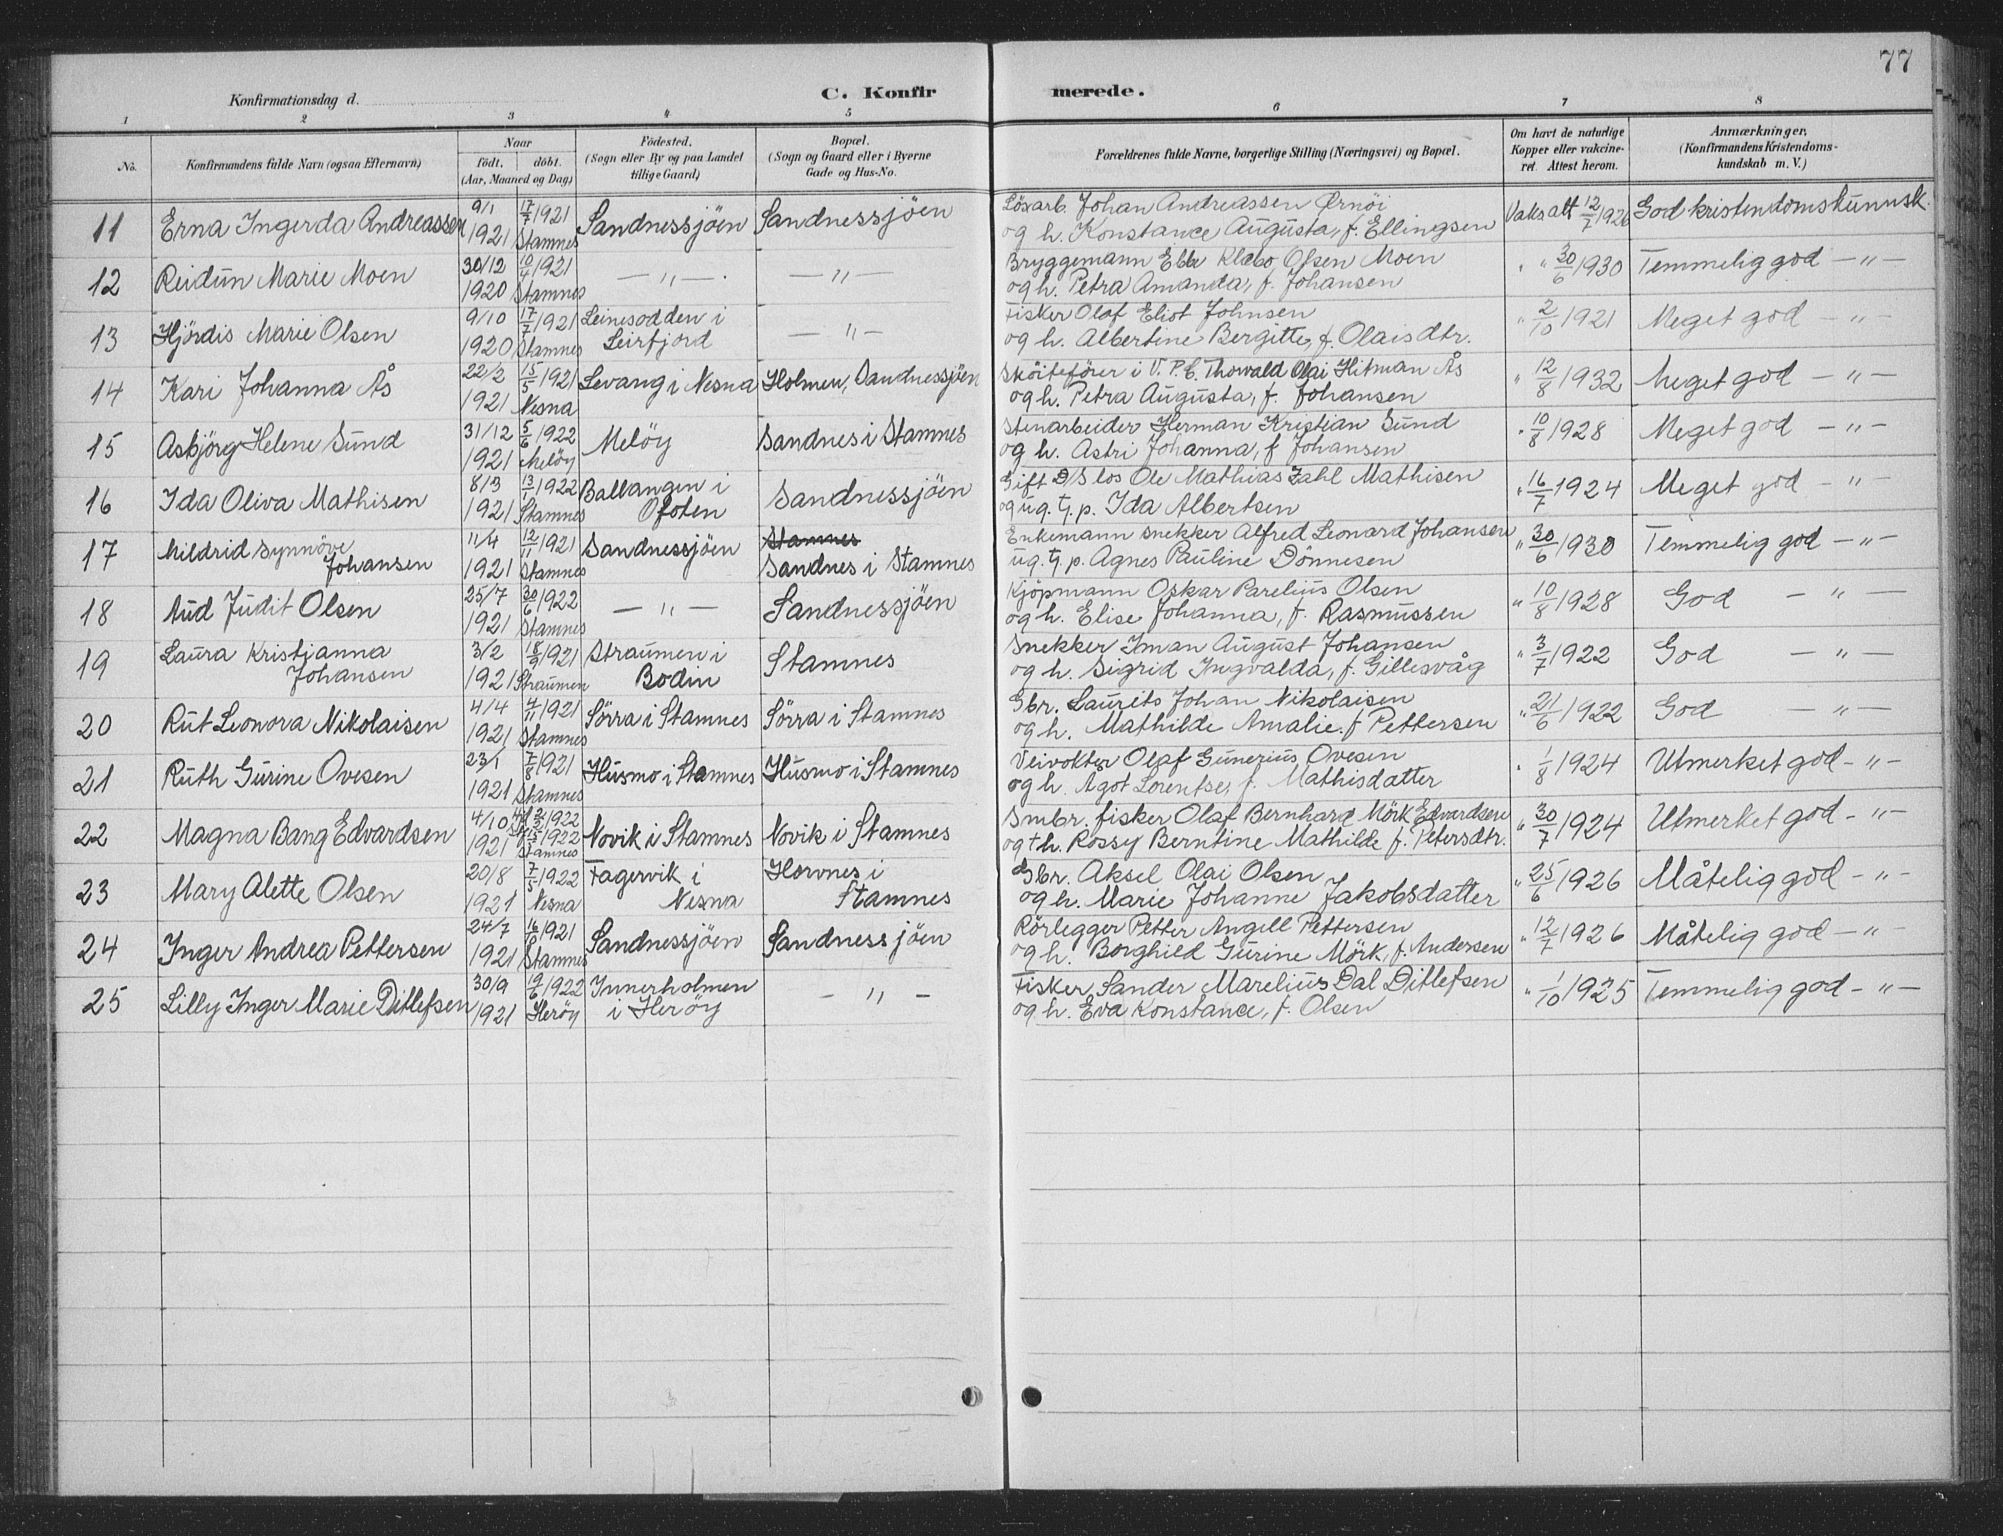 77
Konfirmationsdag d.
C. Konfir merede.
1 2 3 4 5 6 7 8
No.
Konfirmandens fulde Navn (ogsaa Efternavn)
Naar
födt. döbt.
(Aar, Maaned og Dag)
Födested.
(Sogn eller By og paa Landet
tillige Gaard)
Bopæl.
(Sogn og Gaard eller i Byerne
Gade og Hus-No.
Forældrenes fulde Navne, borgerlige Stilling (Næringsvei) og Bopæl.
Om havt de naturlige
Kopper eller vakcine-
ret. Attest herom.
Anmærkninger,
(Konfirmandens Kristendoms-
kundskab m. V.)
11 Erna Ingerda Andreassen 9/1 1921 17/7 1921 Stamnes Sandnessjöen Sandnessjöen
Lösarb. Johan Andreassen Ørnöi
og h. Konstance Augusta, f. Ellingsen
Vaksatt 12/7 1926 God kristendomskunnsk.
12 Reidun Marie Moen 30/12 1920 10/4 1921 Stamnes — " — — " —
Bryggemann Ebbe Klæbo Olsen Moen
og h. Petra Amanda, f. Johansen
" " 30/6 1930 Temmelig god — " —
13 Hjördis Marie Olsen 9/10 1920 17/7 1921 Stamnes Leinesodden i Leirfjord — " —
Fisker Olaf Eliot Johnsen
og h. Albertine Bergitte, f. Olaisdtr.
" 2/10 1921 Meget god — " —
14 Kari Johanna Ås 22/2 1921 15/5 1921 Nesna Levang i Nesna Holmen, Sandnessjöen
Sköitefører i V.P.C. Thorvald Olai Hitman Ås
og h. Petra Augusta, f. Johansen
" 12/8 1932 Meget god — " —
15 Asbjörg Helene Sund 31/12 1921 5/6 1922 Melöy Melöy Sandnes i Stamnes
Stenarbeider Herman Kristian Sund
og h. Astri Johanna, f Johansen
" 10/8 1928 Meget god — " —
16 Ida Oliva Mathisen 8/3 1921 13/1 1922 Stamnes Ballangen i Ofoten Sandnessjöen
Gift D/S los Ole Mathias Zahl Mathisen
og ug. t. p. Ida Albertsen
" 16/7 1924 Meget god — " —
17 Mildrid Synnöve Johansen 11/4 1921 12/11 1921 Stamnes Sandnessjöen Stamnes
Sandnes i Stamnes
Enkemann snekker Alfred Leonard Johansen
ug. t. p. Agnes Pauline Dönnesen
" 30/6 1930 Temmelig god — " —
18 Aud Judit Olsen 25/7 1921 30/6 1922 Stamnes — " — Sandnessjöen
Kjöpmann Oskar Parelius Olsen
og h. Elise Johanna, f. Rasmussen
" 10/8 1928 God — " —
19 Laura Kristjanna Johansen 3/2 1921 18/9 1921 Straumen Straumen i Bodin Stamnes
Snekker Iman August Johansen
og h. Sigrid Ingvalda, f. Gillesvåg
" 3/7 1922 God — " —
20 Rut Leonora Nikolaisen 4/4 1921 4/11 1921 Stamnes Sörra i Stamnes Sörra i Stamnes
Gbr. Laurits Johan Nikolaisen
og h. Mathilde Amalie. f Pettersen
" 21/6 1922 God — " —
21 Ruth Gurine Ovesen 23/1 1921 7/8 1921 Stamnes Husmo i Stamnes Husmo i Stamnes
Veivokter Olaf Gunerius Ovesen
og h. Ågot Lorentse, f. Mathisdatter
" 1/8 1924 Utmerket god - " -
22 Magna Bang Edvardsen 4/10 1921 1922 1922 Stamnes Novik i Stamnes Novik i Stamnes
Smbr. fisker Olaf Bernhard Mörk Edvardsen
og † h. Rossy Berntine Mathilde f. Petersdtr.
" 30/7 1924 Utmerket god - " -
23 Mary Alette Olsen 20/8 1921 7/5 1922 Nesna Fagervik i Nesna Horvnes i Stamnes
Gbr. Aksel Olai Olsen
og h. Marie Johanne Jakobsdatter
" 25/6 1926 Måtelig god - " -
24 Inger Andrea Pettersen 24/7 1921 1921 Stamnes Sandnessjöen Sandnessjöen
Rörlegger Petter Angell Pettersen
og h. Borghild Gurine Mörk, f. Andersen
" 12/7 1926 Måtelig god - " -
25 Lilly Inger Marie Ditlefsen 30/9 1921 1922 Heröy Innerholmen i Heröy — " —
Fisker Sander Marelius Dal Ditlefsen
og h. Eva Konstance, f. Olsen
" 1/10 1925 Temmelig god - " -